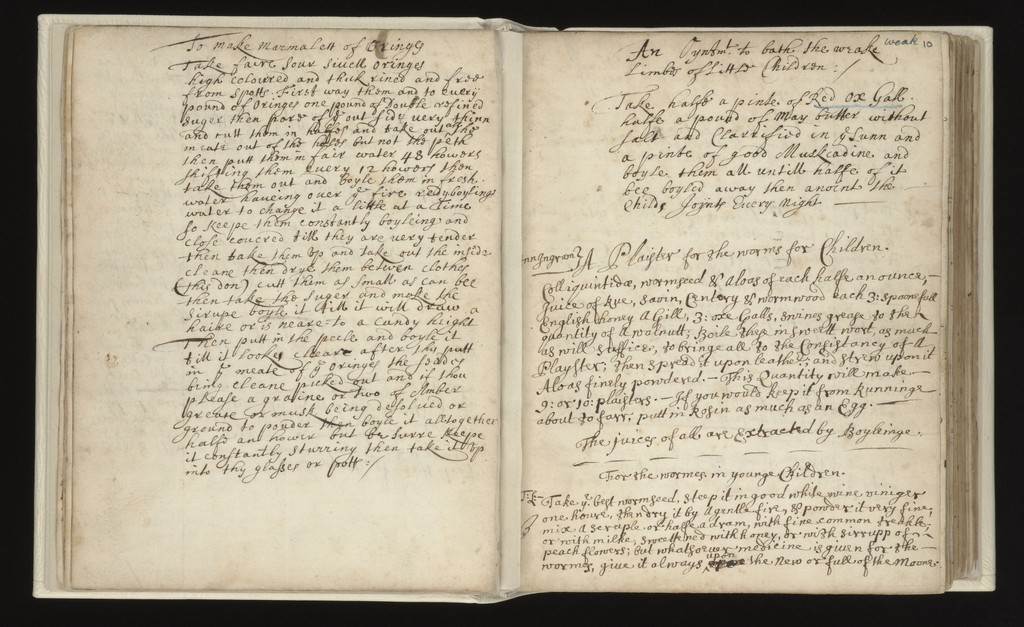 To make Marmalett of Oringes
Take faire sour sivell oringes
high coloured and thick rined and free
from spotts. First way them and to every
pound of Oringes one pound of Double refined
suger then pare of yᵉ out sid very thinn
and cutt them in halfes and take out all the
meate out of the holes but not the peth
then putt them in fair water 48 howers
shifting them every 12 howers then
take them out and boyle them in fresh
water haveing over yᵉ fire redy boyling
water to change it a little at a time
so keepe them constantly boyleing and
close covered till they are very tender
then take them up and take out the inside
cleane then drye them betwen clothes
(this don) cutt them as small as can bee
then take the suger and make the
sirupe boyle it till it will draw a
haire or is neare to a candy height
Then putt in the peeles and boyle it
till it looks cleare after this putt
in yᵉ meate of yᵉ oringes the
bing cleane picked out and if thou
please a graine or two of Amber
greece or musk being desolved or
ground to pouder then boyle it altogether
halfe an hower but be surre keepe
it constantly sturring then take it up
into thy glasses or pott :/
weak 10
An Oyntmᵗ to bath the weake
Limbes of Little Children :/
Take halfe a pinte of Red Ox Gall.
halfe a pound of May butter without
salt and Clarrified in yᵉ sunn and
a pinte of good Muskadine and
boyle them all untill halfe of it
bee boyled away then anoint the
Childs Joynts Every Night
A Plaister for the worms for Children.
Colliquintidæ, wormseed & aloos of each halfe an ounce,
Juice of Rue, Savin, Centory & wormwood each 3: spoonefull
English honey A Gill, 3: oxe Galls, swines grease to the
quantity of A walnutt; Boile these in sweett wort, as much
as will suffice, to bringe all to the Consistancy of A
Playster; then spread it upon leather; and strew upon it
Aloas finely powdered. — This Quantity will make
9: or 10: plaisters. — If you would keep it from Runninge
about to farr; putt in Rosin as much as an Egg.
The juices of all are Extracted by Boyleinge.
For the wormes in younge Children.
Take yᵉ best wormseed, steep it in good white wine viniger
one houre, then dry it by a gentle fire, & powder it very fine,
mix a scruple or halfe a dram, with fine common treakle,
or with milke, sweettened with honey, or with sirrupp of
peach flowers; but whatsoever medicine is given for the
wormes, give it always upon the New or full of the Moone.